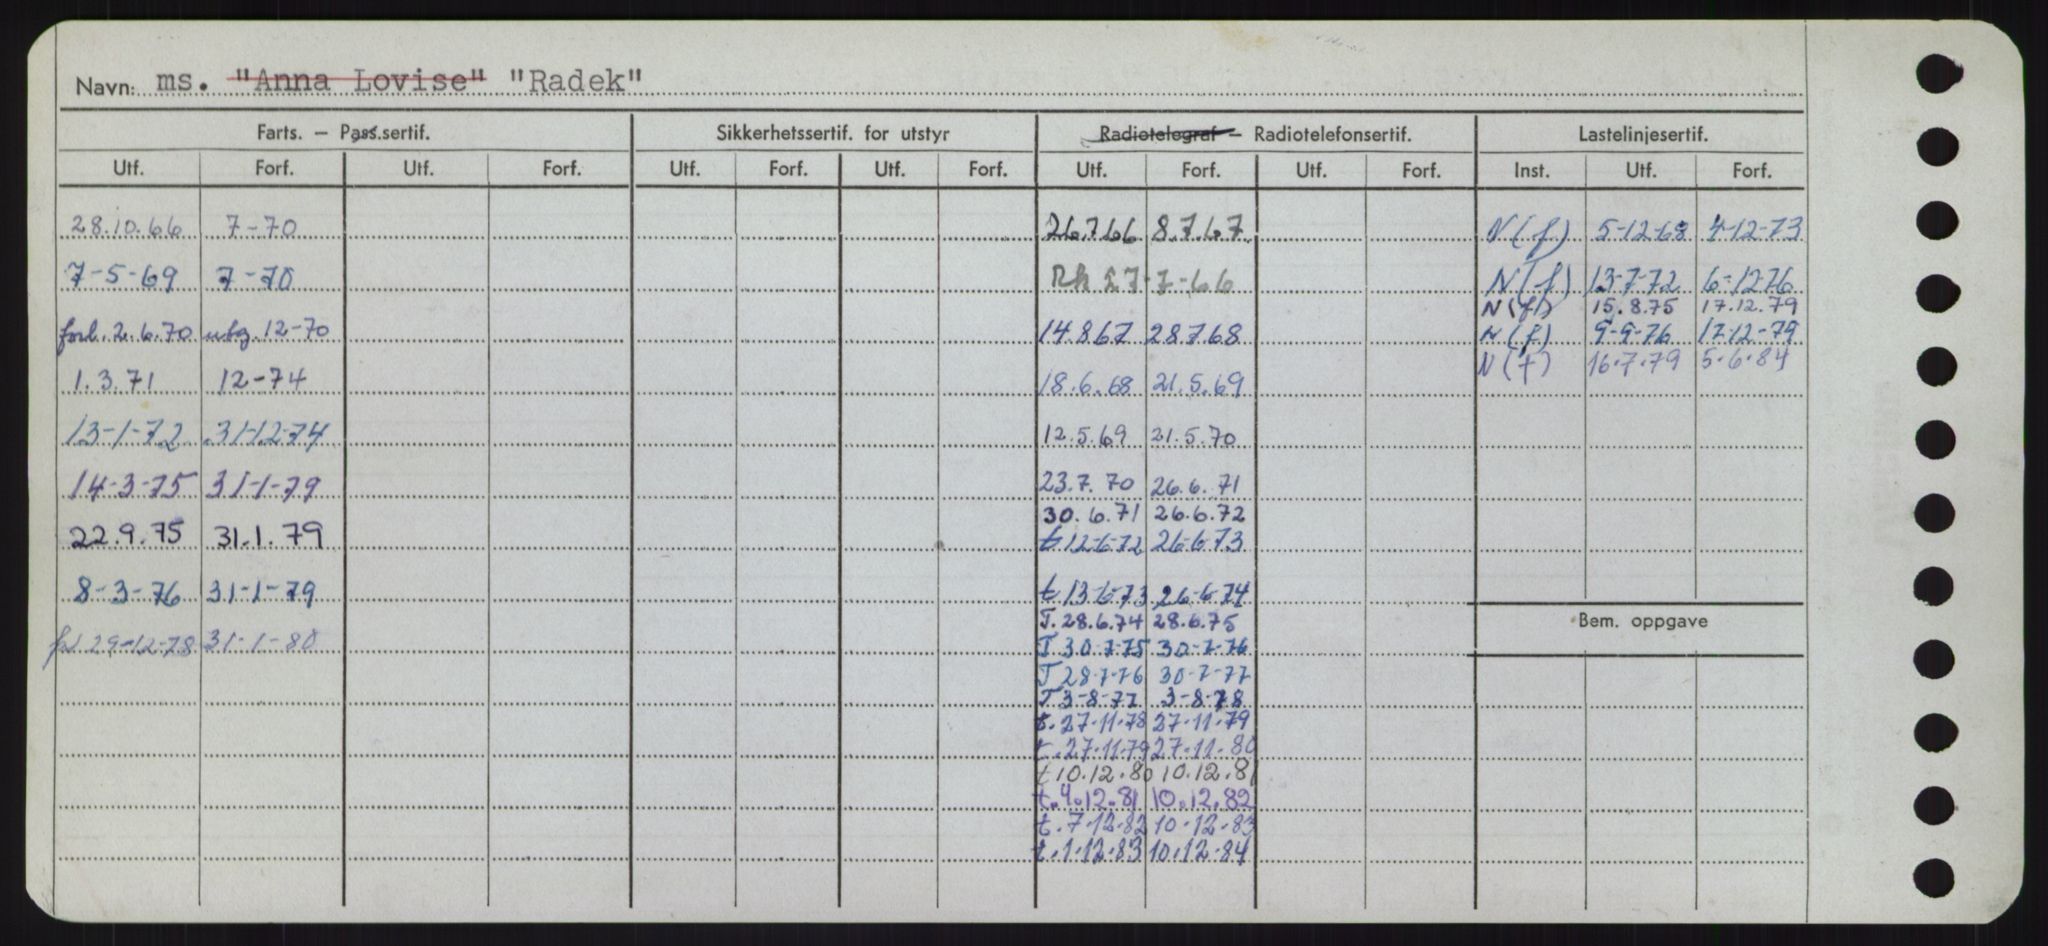 Navn: ms. "Anna Lovise" "Radek"
Farts. – Pass.sertif. Sikkerhetssertif. for utstyr Radiotelegraf – Radiotelefonsertif. Lastelinjesertif.
Utf. Forf. Utf. Forf. Utf. Forf. Utf. Forf. Utf. Forf. Utf. Forf. Inst. Utf. Forf.
28.10.66 7-70 26.7.66 8.7.67 N(f) 5-12-68 4-12-73
7-5-69 7-70 Rk 27-7-66 N(f) 13-7-72 6-12-76
N(f) 15.8.75 17.12.79
forl. 2.6.70 utg. 12-70 14.8.67 28.7.68 N(f) 9-9-76 17-12-79
N(f) 16.7.79 5.6.84
1.3.71 12-74 18.6.68 21.5.69
13-1-72 31-12-74 12.5.69 21.5.70
14-3-75 31-1-79 23.7.70 26.6.71
30.6.71 26.6.72
22.9.75 31.1.79 t 12-6-72 26-6-73
8-3-76 31-1-79 t 13-6-73 26-6-74
T. 28.6.74 28.6.75 Bem. oppgave
29-12-78 31-1-80 T 30-7-75 30-7-76
T 28-7-76 30-7-77
T. 3-8-77 3-8-78
t. 27-11-78 27-11-79
t. 27-11-79 27-11-80
t 10.12.80 10.12.81
t. 4.12.81 10.12.82
t. 7-12-82 10-12-83
t. 1-12-83 10.12-84